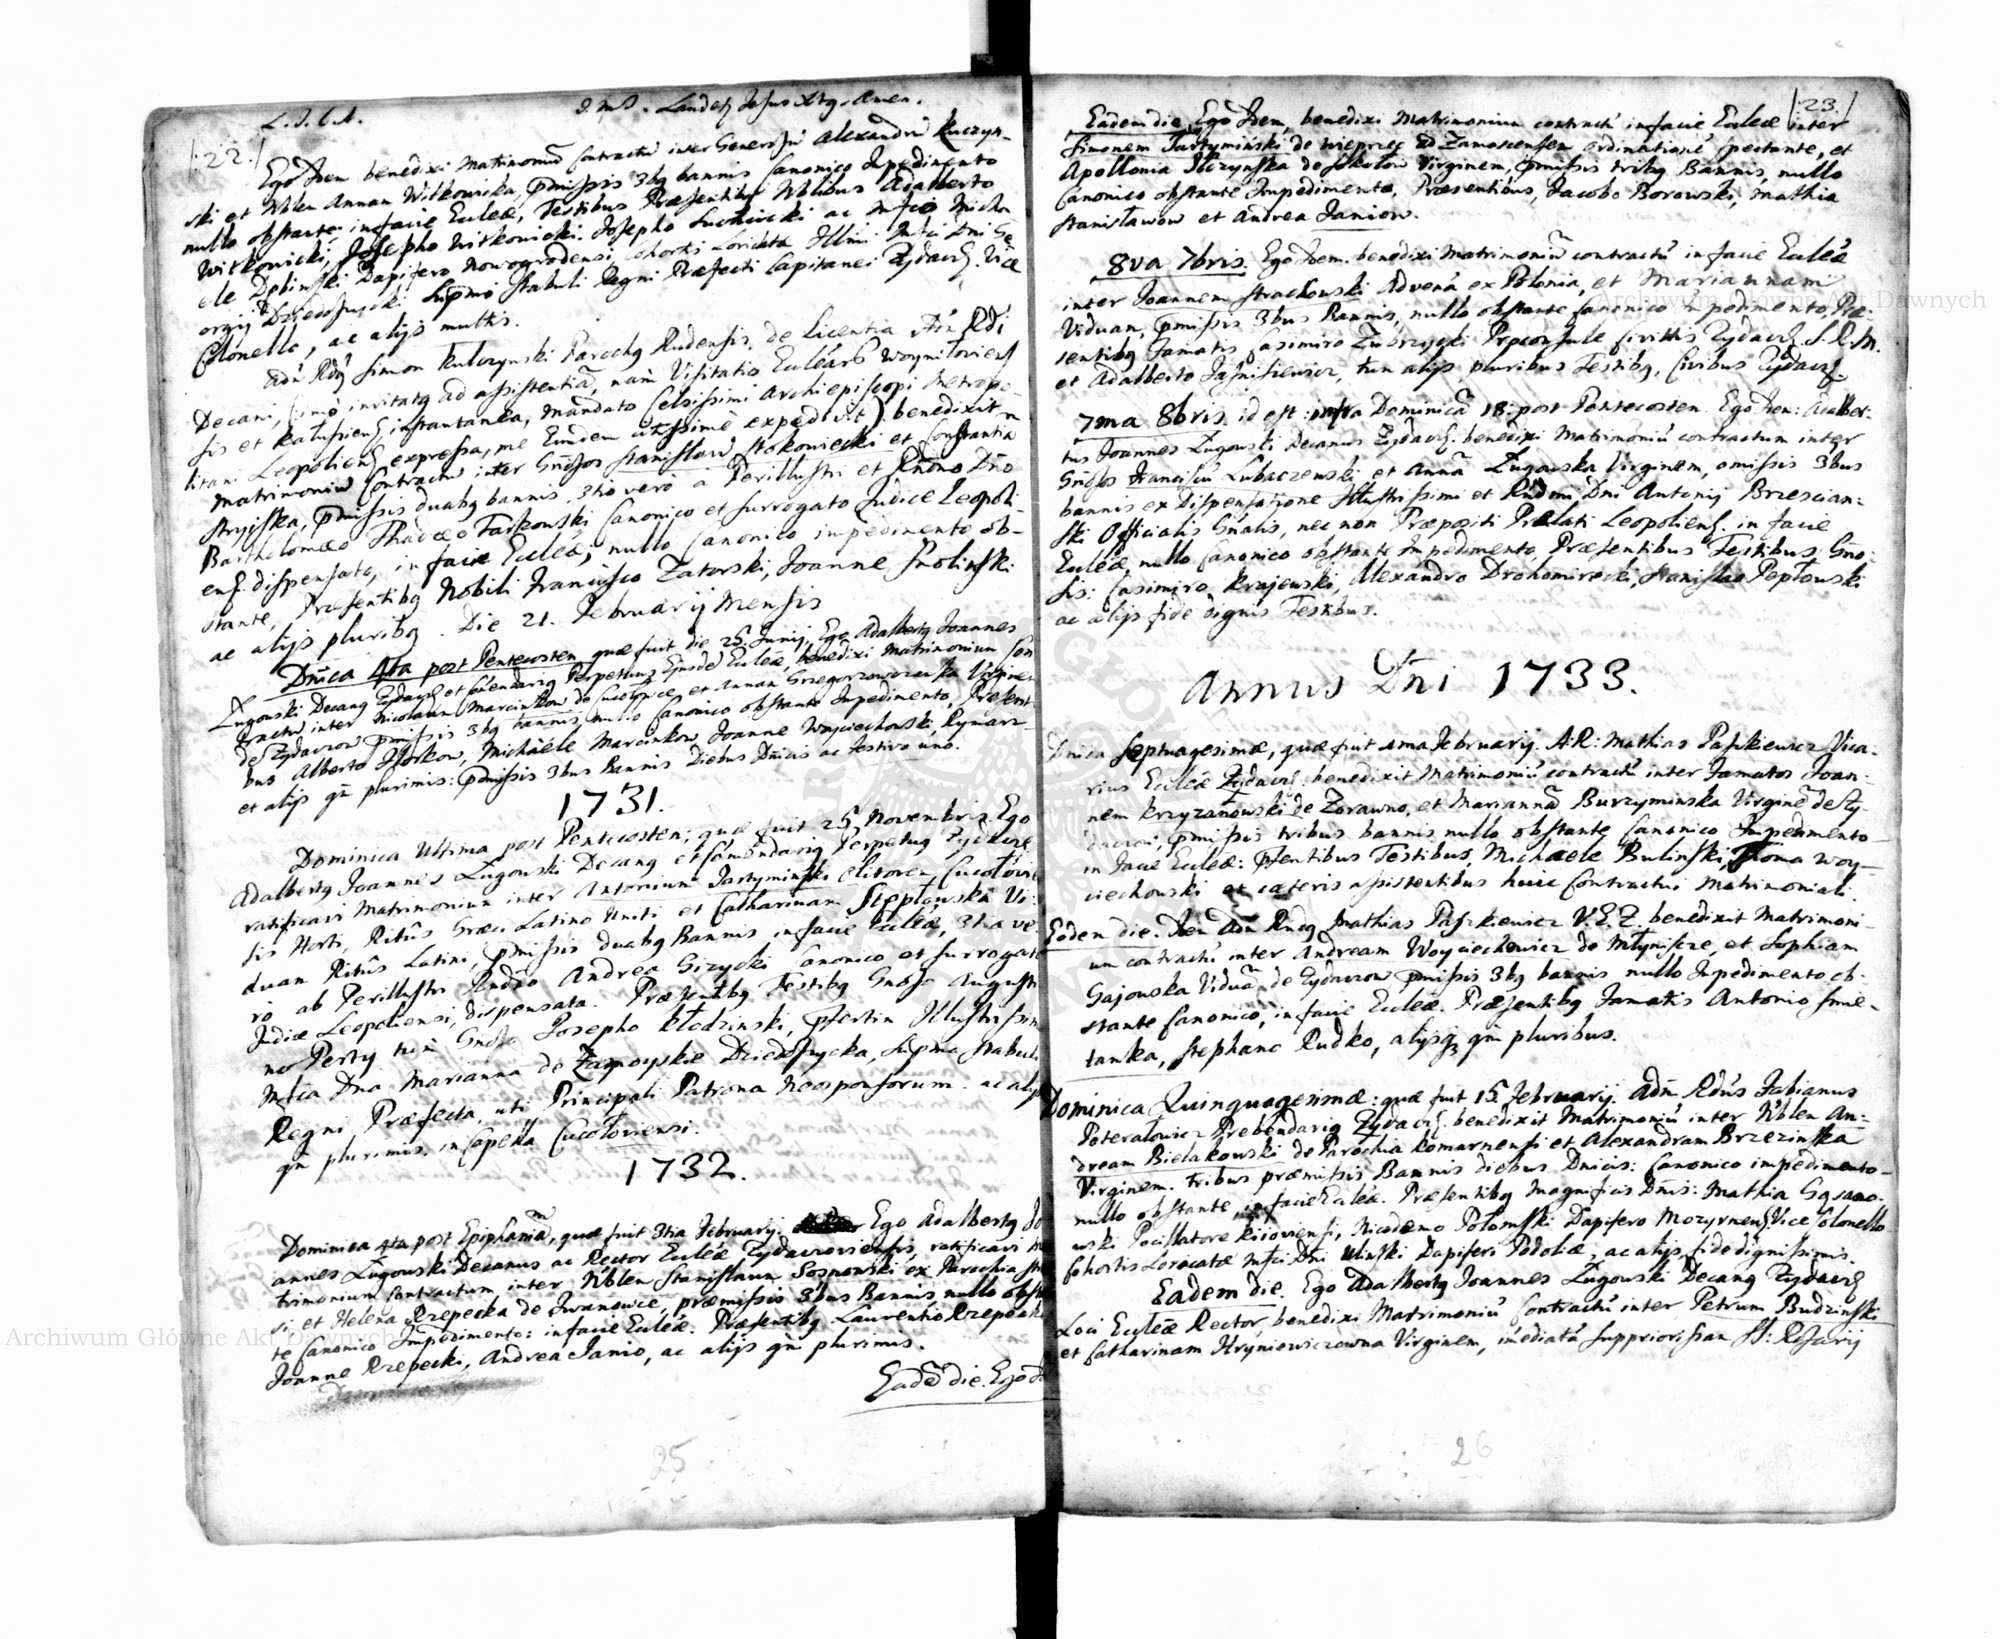 |:22:|
L. J. C. A.
J. M. J. Laudetz Jesus Xtg. Amen.
Ego Idem benedixi Matrimoniũ Contractũ inter Generosũ Alexandrũ Kuczyn-
ski et Nblem Annam Witkowicka, p̃missis 3bg bannis Canonico Impedimento
nullo obstante in facie Eccleæ, Testibus Præsentibg Nblibus Adalberto
Witkowicki, Josepho Witkowicki, Josepho Suchcicki ac Mfco Micha-
ele Dębinski Dapifero Nowogrodensi, Cohortis Loricatæ Illmi Mfci Dni Ge-
orgij Dzieduszycki Suprmi Stabuli Regni Præfecti Capitanei Zydacz. Vice
Colonello, ac alijs multis.
Adm Rdg Simon Kulczynski Parochg Rudensis, de Licentia Adm Rdi
Decani, (imo invitatg ad assistentiã, nam Visitatio Ecclearũ Woyniłoviens
sis et Kałusziens instantanea, mandato Celsissimi Archiepiscopi Metropo-
litani Leopoliens expressa, me Eundem expedivit) benedixit
Matrimoniũ Contractũ inter Gnosos Stanisław Stokowiecki et Constantia
Stryiska, p̃missis duabg bannis, 3tio vero a Perillustri et Rndno Dno
Bartholomæo Thadæo Taszkowski Canonico et Surrogato Judice Leopoli-
ens. dispensato, in facie Eccleæ, nullo Canonico impedimento ob-
stante, Præsentibg Nobili Francisco Zatorski, Joanne Smolinski
ac alijs pluribg. Die 21. Februarij Mensis
Dñica 4ta post Pentecosten quæ fuit die 25. Junij, Ego Adalbertg Joannes
Zugowski Decang Zydacz et Comendarig Perpetuus Ejusdẽ Eccleæ, benedixi Matrimonium Con
tractũ, inter Nicolaum Marcinkow de Cucołowce, et Annam Grzegorzowczanka Virginem
de Zydaczow p̃missis 3bg bannis, nullo Canonico obstante Impedimento, Præsenti
bus Alberto Horkow, Michäele Marcinkow, Joanne Woyciechowski, Rymarz
et alijs qm̃ plurimis: p̃missis 3bus Bannis Diebus Dñicis ac festivo uno.
1731.
Dominica Ultima post Pentecosten; quæ fuit 25 Novembris Ego
Adalbertg Joannes Zugowski Decang et Comendarig Perpetug Zydacze
ratificavi Matrimonium inter Antonium Jartyminski Olitorem Cucołovi
sis Horti, Ritûs Græci Latino Uniti et Catharinam Stepłowska Vi-
duam Ritûs Latini, p̃missis duabg Bannis in facie Eccleæ, 3tia ve-
ro ab Perillustri Rndño Andrea Gizycki Canonico et Surrogato
Judice Leopoliensi, dispensata. Præsentibg Testibg Gnoso Augusti
no Perty tum Gnoso Josepho Kłodzinski, p̃sertim Illustrissima
Mfca Dna Marianna de Zamoyskie Dzieduszycka, Supmi Stabuli
Regni Præfecta, uti Principali Patrona Neosponsorum. ac alijs
qm̃ plurimis, in Capella Cucołoviensi.
1732.
Dominica 4ta post Epiphaniã, quæ fuit 3tia Februarij. Ego Adalbertg Jo
annes Zugowski Decanus ac Rector Eccleæ Zydaczoviensis, ratificavi Ma
trimonium contractum, inter Nblem Stanislaum Sosnowski ex Parochia
si et Helena Rzepecka de Iwanowce, præmissis 3bus Bannis nullo obstan
te Canonico Impedimento: in facie Eccleæ. Præsentibg Laurentio Rzepecki
Joanne Rzepecki, Andrea Janio, ac alijs qm̃ plurimis.
Eadẽ die. Ego Id
25
|:23:|
Eadem die, Ego Idem, benedixi Matrimonium contractũ in facie Eccleæ inter
Simonem Jartymiński de Wieprzec ad Zamoscensem ordinationẽ spectante, et
Apollonia Ilczynska de Sokołow Virginem, p̃missis tribg Bannis, nullo
Canonico obstante Impedimento, Præsentibus, Jacobo Borowski, Mathia
Stanisławow et Andrea Janiow.
8va 7bris. Ego Idem. benedixi Matrimoniũ contractũ in facie Eccleæ
inter Joannem Strachowski Advenã ex Polonia, et Mariannam
Viduam, p̃missis 3bus Bannis, nullo obstante Canonico Impedimento, Præ-
sentibg Famatis Casimiro Zubrzycki Proconsule Civittis Zydacz. S. R. M.
et Adalberto Jasnisiewicz, tum alijs pluribus Testibg, Civibus Zydacz.
7ma 8bris. id est: infra Dominicã 18. post Pentecosten. Ego Idem: Adalber-
tus Joannes Zugowski Decanus Zydacz. benedixi Matrimoniũ contractum inter
Gnosos Franciscũ Lubaczewski et Annã Zugowska Virginem, omissis 3bus
bannis ex Dispensatione Illustrissimi et Rndmi Dni Antonij Brzescian-
ski Officialis Gnalis, nec non Præpositi Prælati Leopoliens. in facie
Eccleæ, nullo Canonico obstante Impedimento, Præsentibus Testibus, Gno-
sis: Casimiro Krajewski, Alexandro Drohomirecki, Stanislao Pepłowski
ac alijs fide dignis Testibus.
Annus Dñi 1733.
Dnica Septuagesimæ, quæ fuit 1ma Februarij. A. R: Mathias Paszkiewicz Vica-
rius Eccleæ Zydacz. benedixit Matrimoniũ contractũ inter Famatos Joan-
nem Krzyzanowski de Zorawno, et Mariannã Burzyminska Virginẽ de Zy-
daczow, p̃missis tribus bannis nullo obstante Canonico Impedimento
in facie Eccleæ: p̃sentibus Testibus, Michaele Bulinski, Thoma Woy-
ciechowski et cæteris assistentibus huic Contractui Matrimoniali.
Eodem die. Item Adm Rndg Mathias Paszkiewicz V. E. Z. benedixit Matrimoni-
um contractũ inter Andream Woyciechowicz de Młynisze, et Sophiam
Gajowska Viduã de Zydaczow p̃missis 3bg bannis nullo Impedimento ob-
stante Canonico, in facie Eccleæ. Præsentibg Famatis Antonio Smie-
tanka, Stephano Rudko, alijsq; qm̃ pluribus.
Dominica Quinquagesimæ: quæ fuit 15 Februarij. Adm Rdus Fabianus
Poteralowicz Prebendarig Zydacz. benedixit Matrimoniũ inter Nblem An-
dream Bielakowski de Parochia Komarnensi et Alexandram Brzezinska
Virginem. tribus præmissis Bannis diebus Dnicis: Canonico impedimento
nullo obstante, in facie Eccleæ. Præsentibg Magnificis Dnis: Mathia Gąsano-
wski Pocillatore Kiioviensi, Nicodemo Połomski Dapifero Mozyrnens Vice Colonello
Cohortis Loricatæ Mfci Dni Ulinski Dapiferi Podoliæ, ac alijs fide dignissimis.
Eadem die. Ego Adalbertg Joannes Zugowski Decang Zydacz
Loci Eccleæ Rector, benedixi Matrimoniũ Contractũ inter Petrum Budzinski
et Catharinam Hryniewiczowna Virginem, imediatã Suppriorissam SS: Rosarij
26
Archiwum Główne Akt Dawnych
Archiwum Główne Akt Dawnych